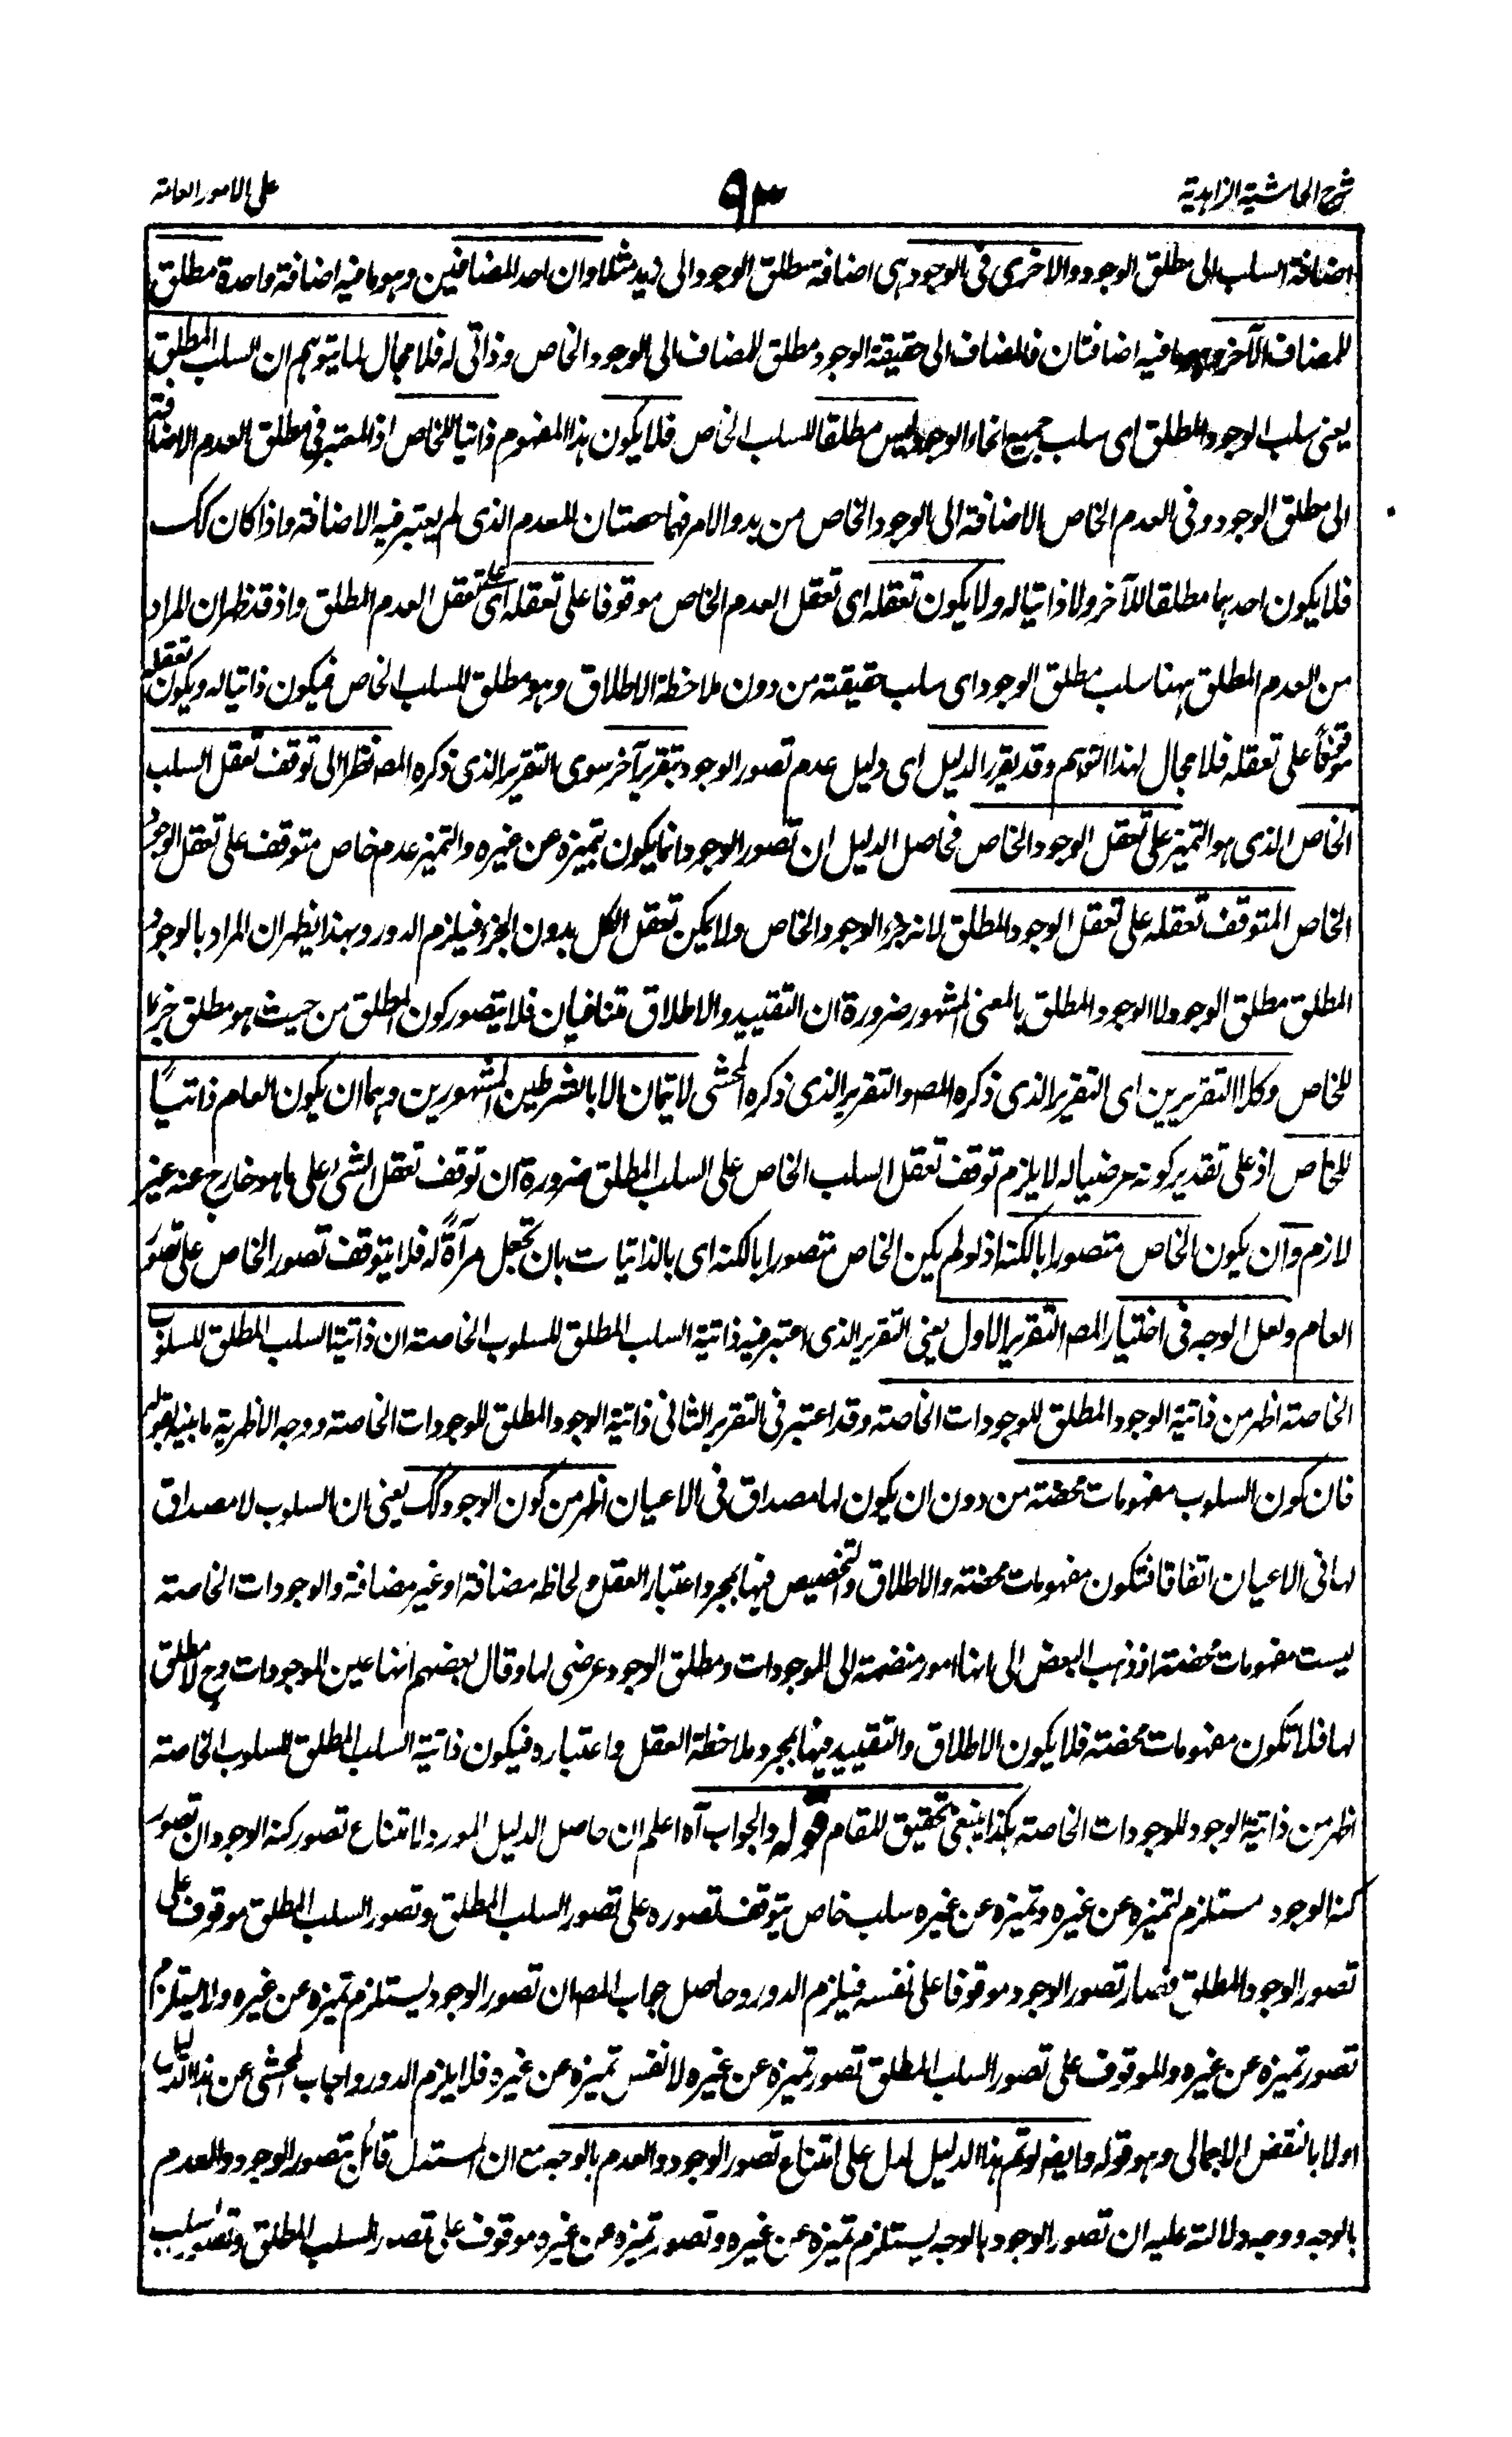 شرح الحاشية الزاهدية ٩٣ على الامور العامة
اضافة السلب الى مطلق الوجود والاخرى فى الوجود هى اضافة مطلق الوجود الى زيد مثلا وان احد المضافين وهو ما فيه اضافة واحدة مطلق
للمضاف الآخر وهو ما فيه اضافتان فالمضاف الى حقيقة الوجود مطلق للمضاف الى الوجود الخاص وذاتى له فلا مجال لما يتوهم ان السلب المطلق
يعنى سلب الوجود المطلق اى سلب جميع انحاء الوجود ليس مطلقا للسلب الخاص فلا يكون هذا المفهوم ذاتيا للخاص اذ المعتبر فى مطلق العدم الاضافة
الى مطلق الوجود وفى العدم الخاص الاضافة الى الوجود الخاص من بدو الامر فهما حصتان للعدم الذى لم يعتبر فيه الاضافة واذا كان كك
فلا يكون احدهما مطلقا للآخر ولا ذاتيا له ولا يكون تعقله اى تعقل العدم الخاص موقوفا على تعقله اى على تعقل العدم المطلق واذ قد ظهر ان المراد
من العدم المطلق ههنا سلب مطلق الوجود اى سلب حقيقته من دون ملاحظة الاطلاق وهو مطلق للسلب الخاص فيكون ذاتيا له ويكون تعقله
موقوفاً على تعقله فلا مجال لهذا التوهم وقد يقرر الدليل اى دليل عدم تصور الوجود بتقرير آخر سوى التقرير الذى ذكره المصـ نظرا الى توقف تعقل السلب
الخاص الذى هو التميز على تعقل الوجود الخاص فحاصل الدليل ان تصور الوجود انما يكون بتميزه عن غيره والتميز عدم خاص متوقف على تعقل الوجود
الخاص المتوقف تعقله على تعقل الوجود المطلق لانه جزء الوجود الخاص ولا يمكن تعقل الكل بدون الجزء فيلزم الدور وبهذا يظهر ان المراد بالوجود
المطلق مطلق الوجود لا الوجود المطلق بالمعنى المشهور ضرورة ان التقييد والاطلاق متنافيان فلا يتصور كون المطلق من حيث هو مطلق جزءا
للخاص وكلا التقريرين اى التقرير الذى ذكره المصـ والتقرير الذى ذكره المحشى لا يتمان الا بالشرطين المشهورين وهما ان يكون العام ذاتياً
للخاص اذ على تقدير كونه عرضيا له لا يلزم توقف تعقل السلب الخاص على السلب المطلق ضرورة ان توقف تعقل الشئ على ما هو خارج عنه غير
لازم وان يكون الخاص متصورا بالكنه اذ لو لم يكن الخاص متصورا بالكنه اى بالذاتيات بان تجعل مرآةً له فلا يتوقف تصور الخاص على تصور
العام ولعل الوجه فى اختيار المصـ التقرير الاول يعنى التقرير الذى اعتبر فيه ذاتية السلب المطلق للسلوب الخاصة ان ذاتية السلب المطلق للسلوب
الخاصة اظهر من ذاتية الوجود المطلق للوجودات الخاصة وقد اعتبر فى التقرير الثانى ذاتية الوجود المطلق للوجودات الخاصة ووجه الاظهرية ما بينه بقوله
فان كون السلوب مفهومات محضة من دون ان يكون لها مصداق فى الاعيان اظهر من كون الوجود كك يعنى ان السلوب لا مصداق
لها فى الاعيان اتفاقا فتكون مفهومات محضة والاطلاق والتخصيص فيها بمجرد اعتبار العقل ولحاظه مضافة او غير مضافة والوجودات الخاصة
ليست مفهومات محضة اذ ذهب البعض الى انها امور منضمة الى الموجودات ومطلق الوجود عرضى لها وقال بعضهم انها عين الموجودات وح لا مطلق
لها فلا تكون مفهومات محضة فلا يكون الاطلاق والتقييد فيها بمجرد ملاحظة العقل واعتباره فيكون ذاتية السلب المطلق للسلوب الخاصة
اظهر من ذاتية الوجود للوجودات الخاصة هكذا ينبغى تحقيق المقام قوله والجواب آه اعلم ان حاصل الدليل المورد لامتناع تصور كنه الوجود ان تصور
كنه الوجود مستلزم لتميزه عن غيره وتميزه عن غيره سلب خاص يتوقف تصوره على تصور السلب المطلق وتصور السلب المطلق موقوف على
تصور الوجود المطلق فصار تصور الوجود موقوفا على نفسه فيلزم الدور وحاصل جواب المصـ ان تصور الوجود يستلزم تميزه عن غيره ولا يستلزم
تصور تميزه عن غيره والموقوف على تصور السلب المطلق تصور تميزه عن غيره لا نفس تميزه عن غيره فلا يلزم الدور واجاب المحشى عن هذا الدليل
اولا بالنقض الاجمالى وهو قوله وايضـ لو تم هذا الدليل لدل على امتناع تصور الوجود والعدم بالوجه مع ان المستدل قائل بتصور الوجود والعدم
بالوجه ووجه دلالته عليه ان تصور الوجود بالوجه يستلزم تميزه عن غيره وتصور تميزه عن غيره موقوف على تصور السلب المطلق وتصور السلب